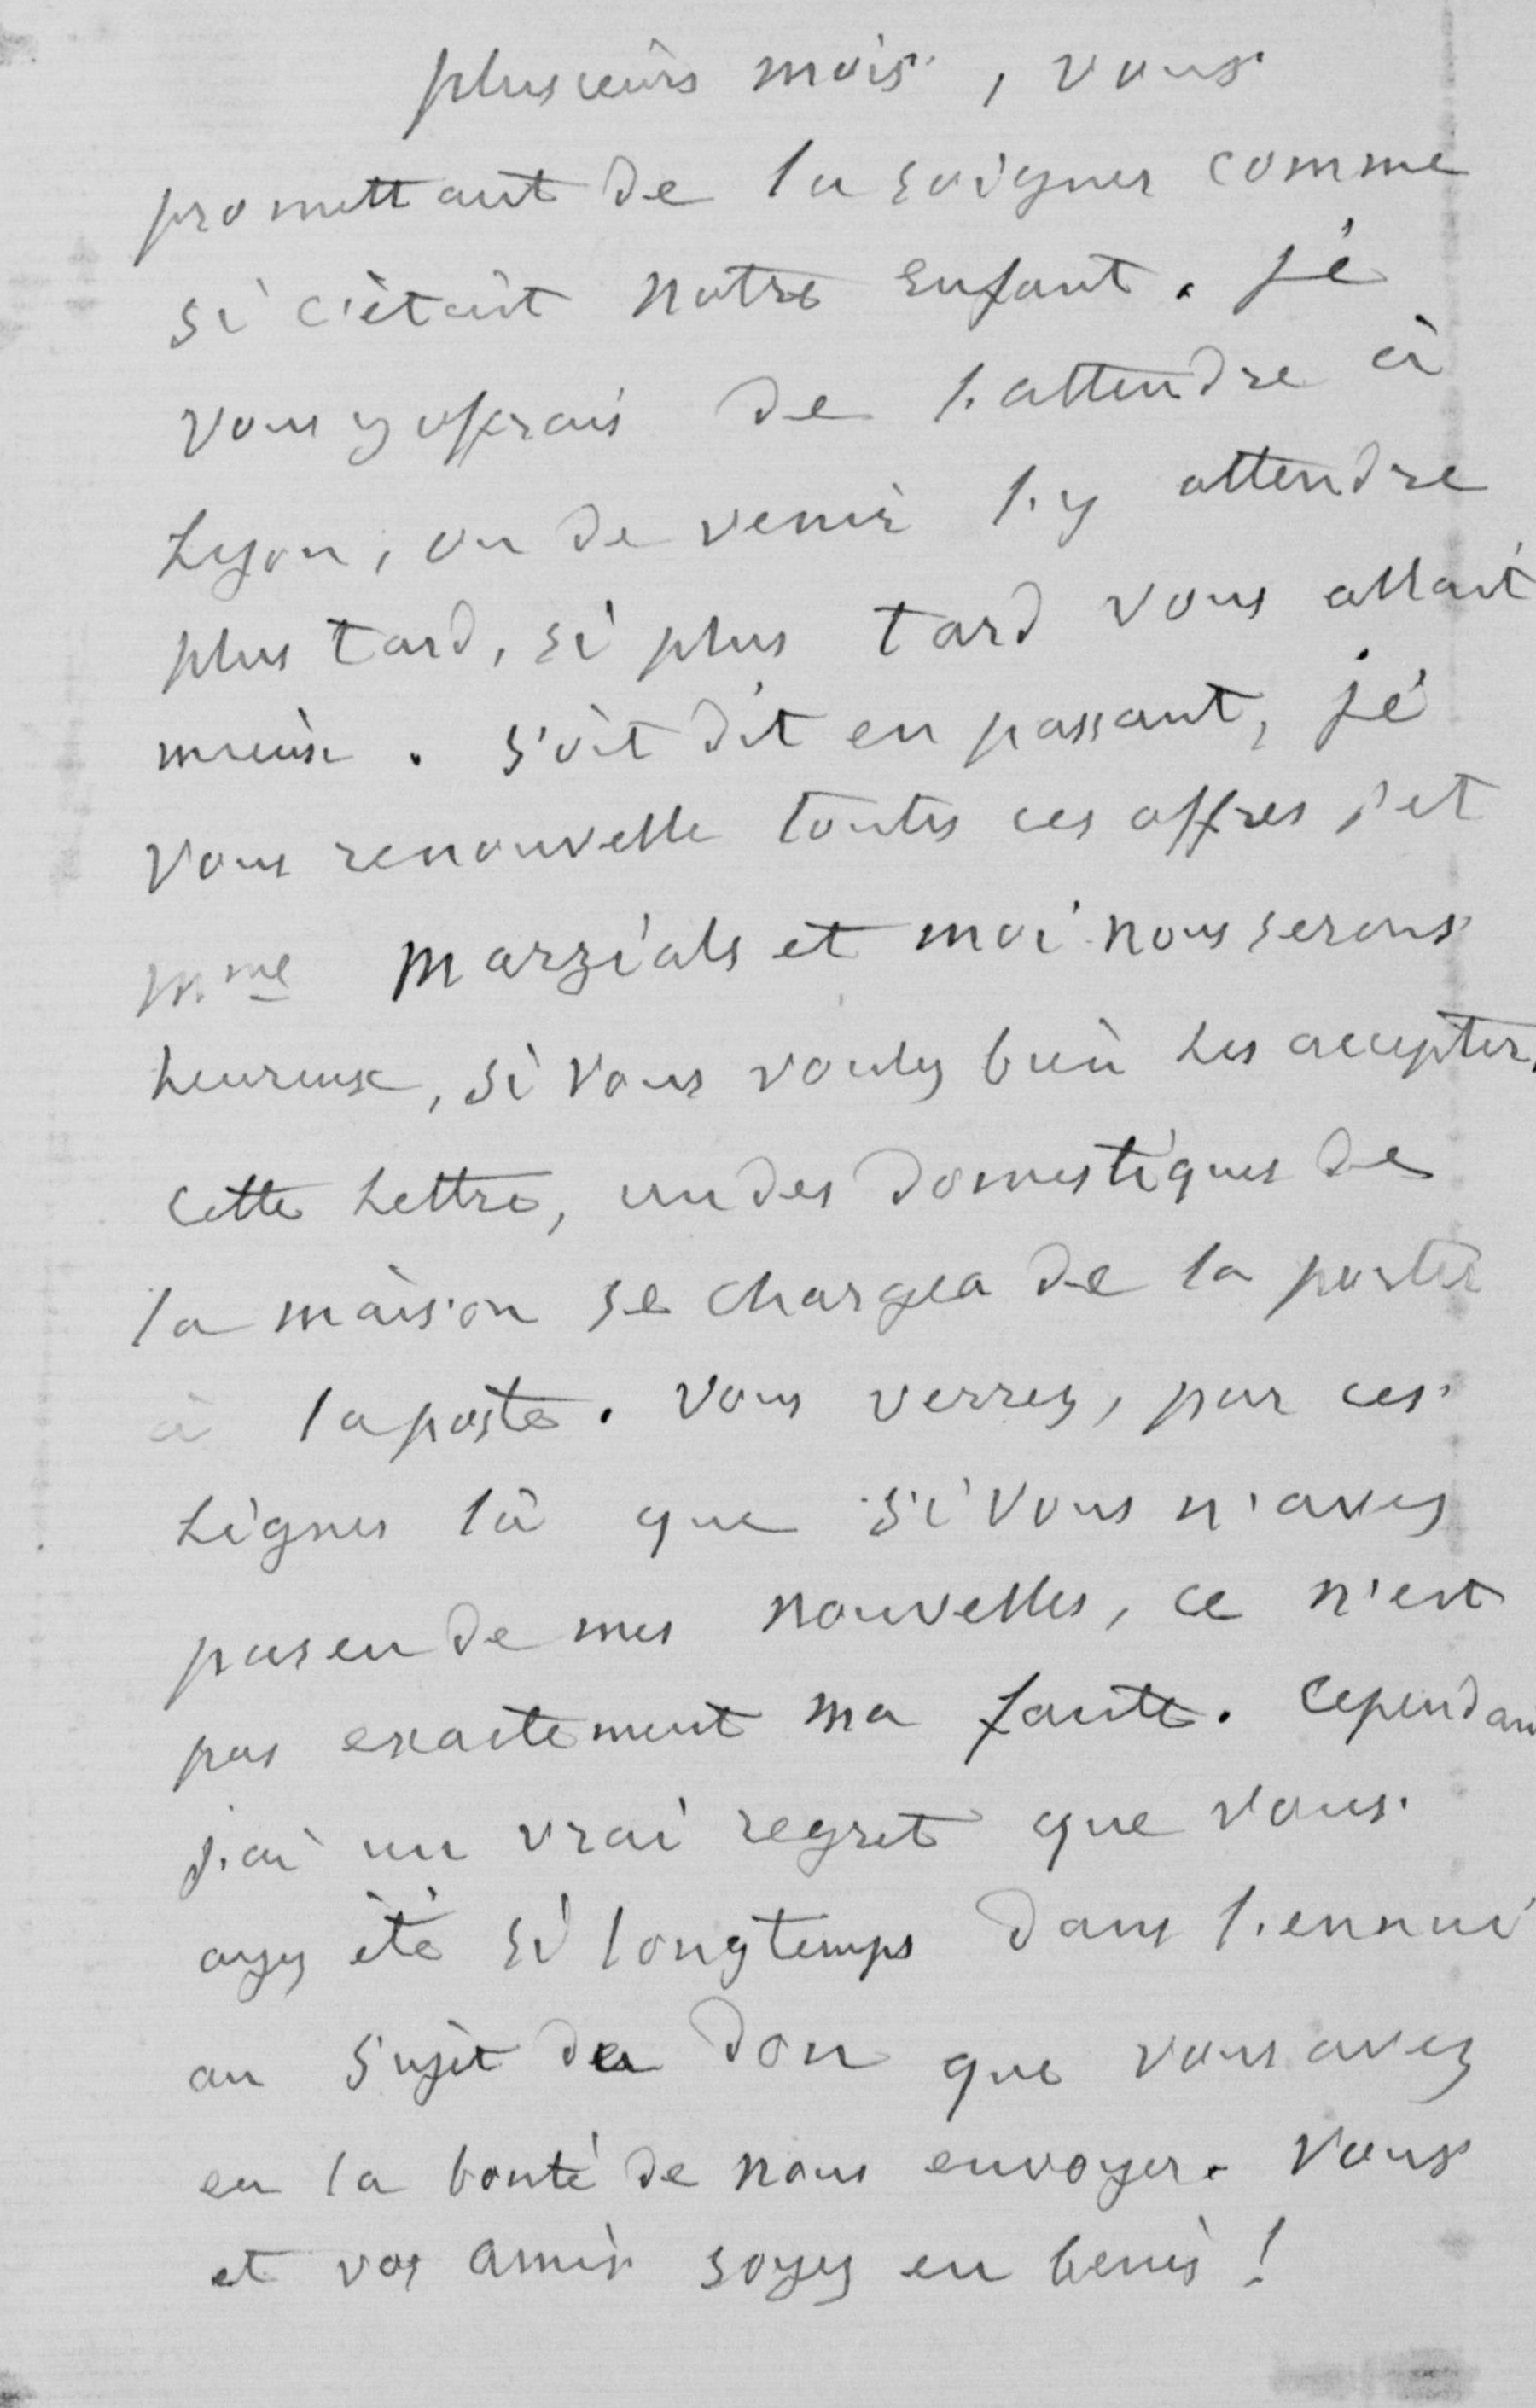 plusieurs mois, vous
promettant de la soigner comme
si c'était notre enfant. je
vous y offrais de l'attendre à
Lyon, ou de venir l'y attendre
plus tard, si plus tard vous allait
mieux. soit dit en passant, je
vous renouvelle toutes ces offres, et
Mme Marzials et moi nous serons
heureux, si vous voulez bien les accepter.
cette lettre, un des domestiques de
la maison se chargea de la porter
à la poste. vous verrez, par ces
lignes là que si vous n'avez
pas eu de mes nouvelles, ce n'est
pas exactement ma faute. cependan
j'ai un vrai regret que vous
ayez été si longtemps dans l'ennui
au sujet du don que vous avez
eu la bonté de nous envoyer. vous
et vos amis soyez en benis !